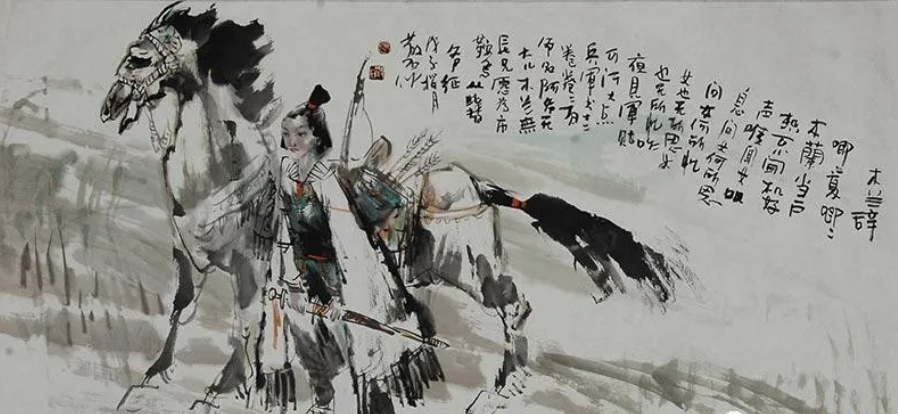 木兰辞
唧复唧々
木蘭当户
织不闻机杼
声唯闻女叹
息问女何所思
问女何所忆
女也无所思女
也无所忆昨
夜見軍贴
可汗大点
兵軍书十二
卷卷有
爷名阿爷无
大儿木兰無
長兄愿为市
鞍马从此替
爷征
戊子 月